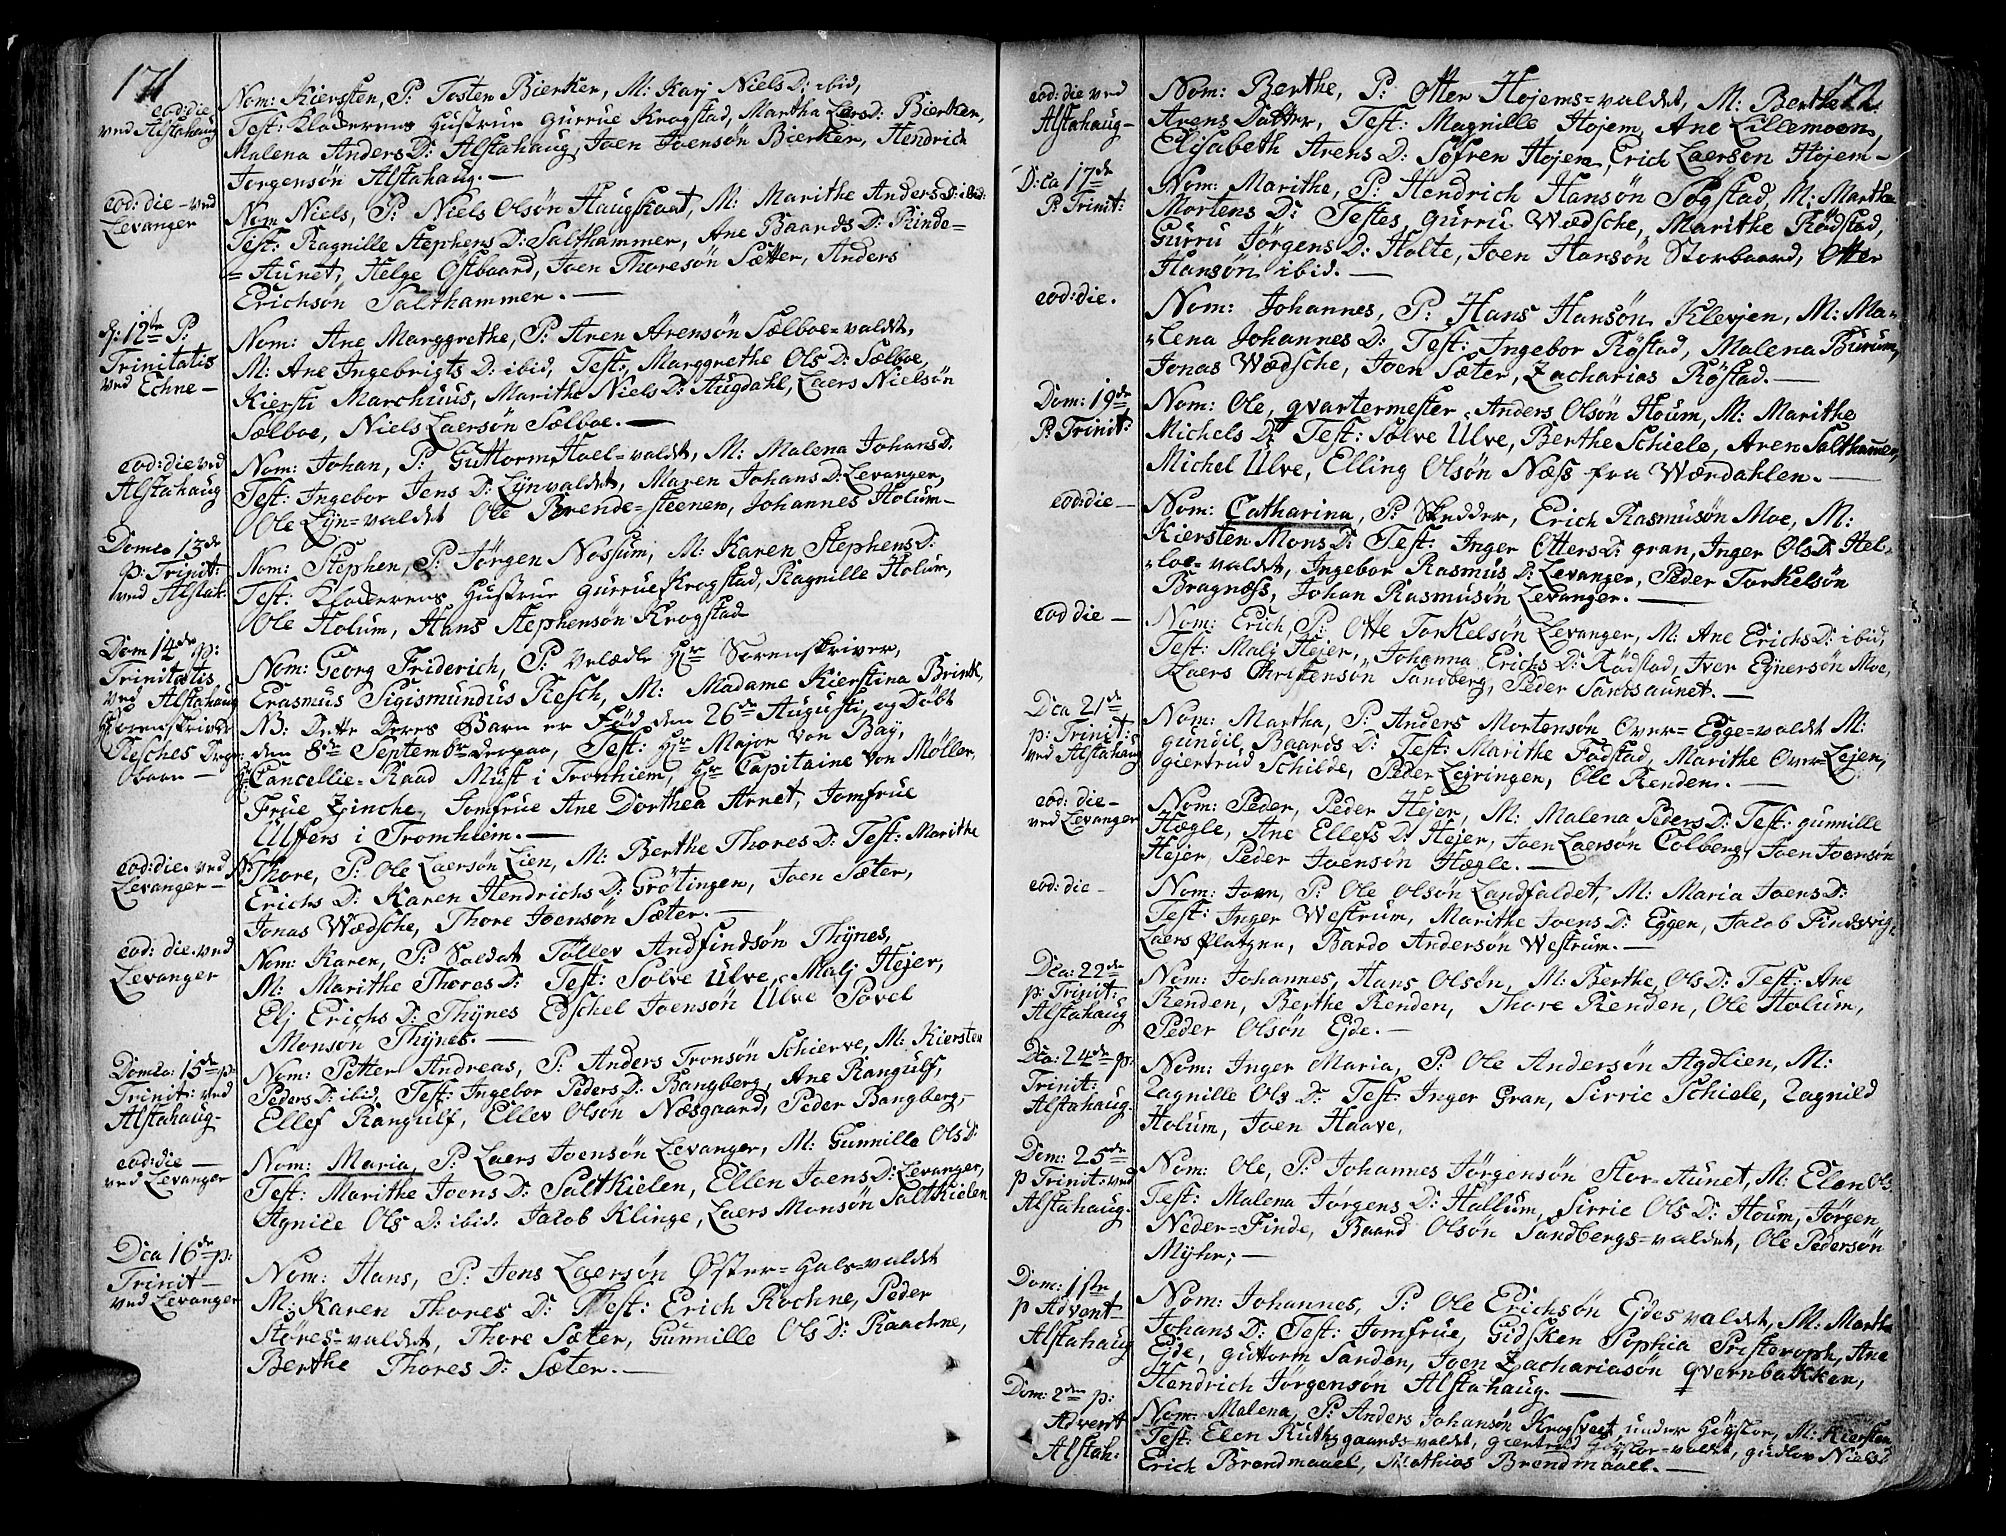 171
eod: die
ved Alstahaug
Nom: Kiersten, P: Tosten Bierken, M: Karj Niels D: ibid,
Test: Klockerens Hustrue Gurrue Krogstad, Martha Laers D: Bierken,
Malena Anders D: Alstahaug, Joen Joensön Bierken, Hendrich
Jorgensön Alstahaug.—
eod: die – ved
Levanger
Nom Niels, P: Niels Olsön Haugskaat, M: Marithe Anders D: ibid:
Test: Ragnille Stephens D: Salthammer, Ane Baards D: Rinde=
=Aunet, Helge Ostbaard, Joen Thoresön Sætter, Anders
Erichsön Salthammer.—
12te P:
Trinitatis
ved Echne—
Nom: Ane Marggrethe, P: Aren Arensön Sælboe=valdt,
M: Ane Ingebrigts D: ibid, Test: Marggrethe Ols D: Sælboe,
Kiersti Marchuus, Marithe Niels D: Augdahl, Laers Nielsön
Sælboe, Niels Laersön Sælboe.—
eod: die ved
Alstahaug
Nom: Johan, P: Guttorm Hoel=valdt, M: Malena Johans D:
Test: Ingebor Jens D: Lÿnvaldet, Maren Johans D: Levanger,
Ole Lÿn=valdet Ole Brende=steenen, Johannes Holum—
Domca 13de
p: Trinit:
ved Alstah:
Nom: Stephen, P: Jörgen Nossum, M: Karen Stephens D:
Test: Klockerens Hustrue Gurrue Krogstad, Ragnille Holum,
Ole Holum, Hans Stephensön Krogstad
Dom 14de p:
Trinitatis
ved Alstahaug
Sorenskriver
Resches Drege
barn—
Nom: Georg Friderich, P: Velædle Hr Sorenskriver,
Erasmus Sigismundus Resch, M: Madame Kierstina Brink,
NB: Dette Deres Barn er Föd den 26de Augusti, og Döbt
den 8de Septembr derpaa, Test: Hr Major Von Baÿ,
Hr Cancellie=Raad Must i Tronhiem, Hr Capitaine Von Möller,
Frue Zinche, Jomfrue Ane Dorthea Arnet, Jomfrue
Ulfers i Tromhiem.—
eod: die. ved
Levanger—
N: Thore, P: Ole Laersön Lien, M: Berthe Thores D: Test: Marithe
Erichs D: Karen Hendrichs D: Grötingen, Joen Sæter,
Jonas Wædsche, Thore Joensön Sæter.—
eod: die. ved
Levanger
Nom: Karen, P: Soldat Tollev Andfindsön Thÿnes,
M: Marithe Thores D: Test: Solve Ulve, Malj Hejer,
Elj Erichs D: Thÿnes Edschel Joensön Ulve Povel
Monsön Thÿnes.—
Domca: 15de p:
Trinit: ved
Alstahaug—
Nom: Petter Andreas, P: Anders Tronsön Schierve, M: Kiersten
Peders D: ibid, Test: Ingebor Peders D: Bangberg, Ane Rangulf,
Ellef Rangulf, Ellev Olsön Næsgaard, Peder Bangberg,—
eod: die —
ved Levanger
Nom: Maria, P: Laers Joensön Levanger, M: Gunnille Ols D:
Test: Marithe Joens D: SaltKielen, Ellen Joens D: Levanger,
Agnice Ols D: ibid. Jacob Klinge, Laers Monsön SaltKielen
Dca 16de p:
Trinit—
ved Levanger
Nom: Hans, P: Jens Laersön Øster=Hals=valdt
M: Karen Thores D: Test: Erich Rochne, Peder
Störes=valdet, Thore Sæter, Gunnille Ols D: Raachne,
Berthe Thores D: Sæter.—
172
eod: die ved
Alstahaug—
Nom: Berthe, P: Otter Hojems=valdet, M: Berthe
Arens Datter, Test: Magnille Hojem, Ane Lillemoen,
Elisabeth Arens D: Söfren Hojem, Erich Laersön Hojem—
D:ca 17de
P: Trinit:
Nom: Marithe, P: Hendrich Hansön Sogstad, M: Marthe
Mortens D: Testes, Gurru Wædsche, Marithe Rödstad,
Gurru Jörgens D: Holte, Joen Hansön Storbaard, Otter
Hansön ibid.—
eod: die.
Nom: Johannes, P: Hans Hansön Klevjen, M: Ma-
-lena Johannes D: Test: Ingebor Röstad, Malena Burum,
Jonas Wædsche, Joen Sæter, Zacharias Röstad.—
Dom: 19de
P: Trinit:
Nom: Ole, qvartermester Anders Olsön Houm, M: Marithe
Michels D: Test: Solve Ulve, Berthe Schiele, Aren Salthammer,
Michel Ulve, Elling Olsön Næss fra Wærdahlen.—
eod: die —
Nom: Catharina, P: Skredder, Erich Rasmusön Moe, M:
Kiersten Mons D: Test: Inger Otters D: gran, Inger Ols D: Hel-
-loe=valdet, Ingebor Rasmus D: Levanger, Peder Torkelsön
Bragnæss, Johan Rasmusön Levanger.—
eod die —
Nom: Erich, P: Otte Torkelsön Levanger, M: Ane Erichs D: ibid,
Test: Malj Hejer, Johanna Erichs D: Rödstad, Iver Ejnersön Moe,
Laers Christensön Sandberg, Peder Sandsaunet.—
Dca 21de
p: Trinit:
ved Alstahaug
Nom: Martha, P: Anders Mortensön Over=Egge=valdt M:
gundil, Baards D: Test: Marithe Fadstad, Marithe Over=Lejen,
Ogiertrud Schilde, Peder Lejringen, Ole Renden.—
eod: die —
ved Levanger
Nom: Peder, Peder Hejer, M: Malena Peders D: Test: gunnille
Hægle, Ane Ellefs D: Hejer, Joen Laersön Colberg, Joen Joensön
Hejer, Peder Joensön Hægle.—
eod: die —
Nom: Joen, P: Ole Olsön Landfaldet, M: Maria Joens D:
Test: Inger Westrum, Marithe Joens D: Eggen, Jacob Findsvig,
Laers Platzen, Bardo Andersön Westrum.—
Dca: 22de
p: Trinit:
Alstahaug
Nom: Johannes, Hans Olsön, M: Berthe, Ols D: Test: Ane
Renden, Berthe Renden, Thore Renden, Ole Holum,
Peder Olsön Ejde.—
Dca: 24de p:
Trinit:
Alstahaug.
Nom: Inger Maria, P: Ole Andersön Agdlien, M:
Zagnille Ols D: Test: Inger Gran, Sirrie Schiele, Zagnild
Holum, Joen Haave,
Dom: 25de
p Trinit: ved
Alstahaug.
Nom: Ole, P: Johannes Jörgensön Stor=Aunet, M: Elen Ols
Test: Malena Jörgens D: Hallum, Sirrie Ols D: Houm, Jörgen
Neder=Finde, Baard Olsön Sandbergs=valdet, Ole Pedersön
Mÿhr;—
Dom: 1ste
p Advent
Alstahaug
Nom: Johannes, P: Ole Erichsön Ejdesvaldet, M: Martha
Johans D: Test: Jomfrue, Gidsken Sophia Pristeroph, Ane
Ejde, guttorm Sanden, Joen Zachariasön qvernbakken,
Hendrich Jörgensön Alstahaug.—
Dom: 2den p:
Advent
Alstah:
Nom: Malena, P: Anders Johansön Krogsvet, under Höÿslor, M: Kiersten
Test: Elen Ruthsgaards=valdet, giertrud =valdet, gudlov Niels D
Erich Brendmoael, Mathias Brendmoael.—